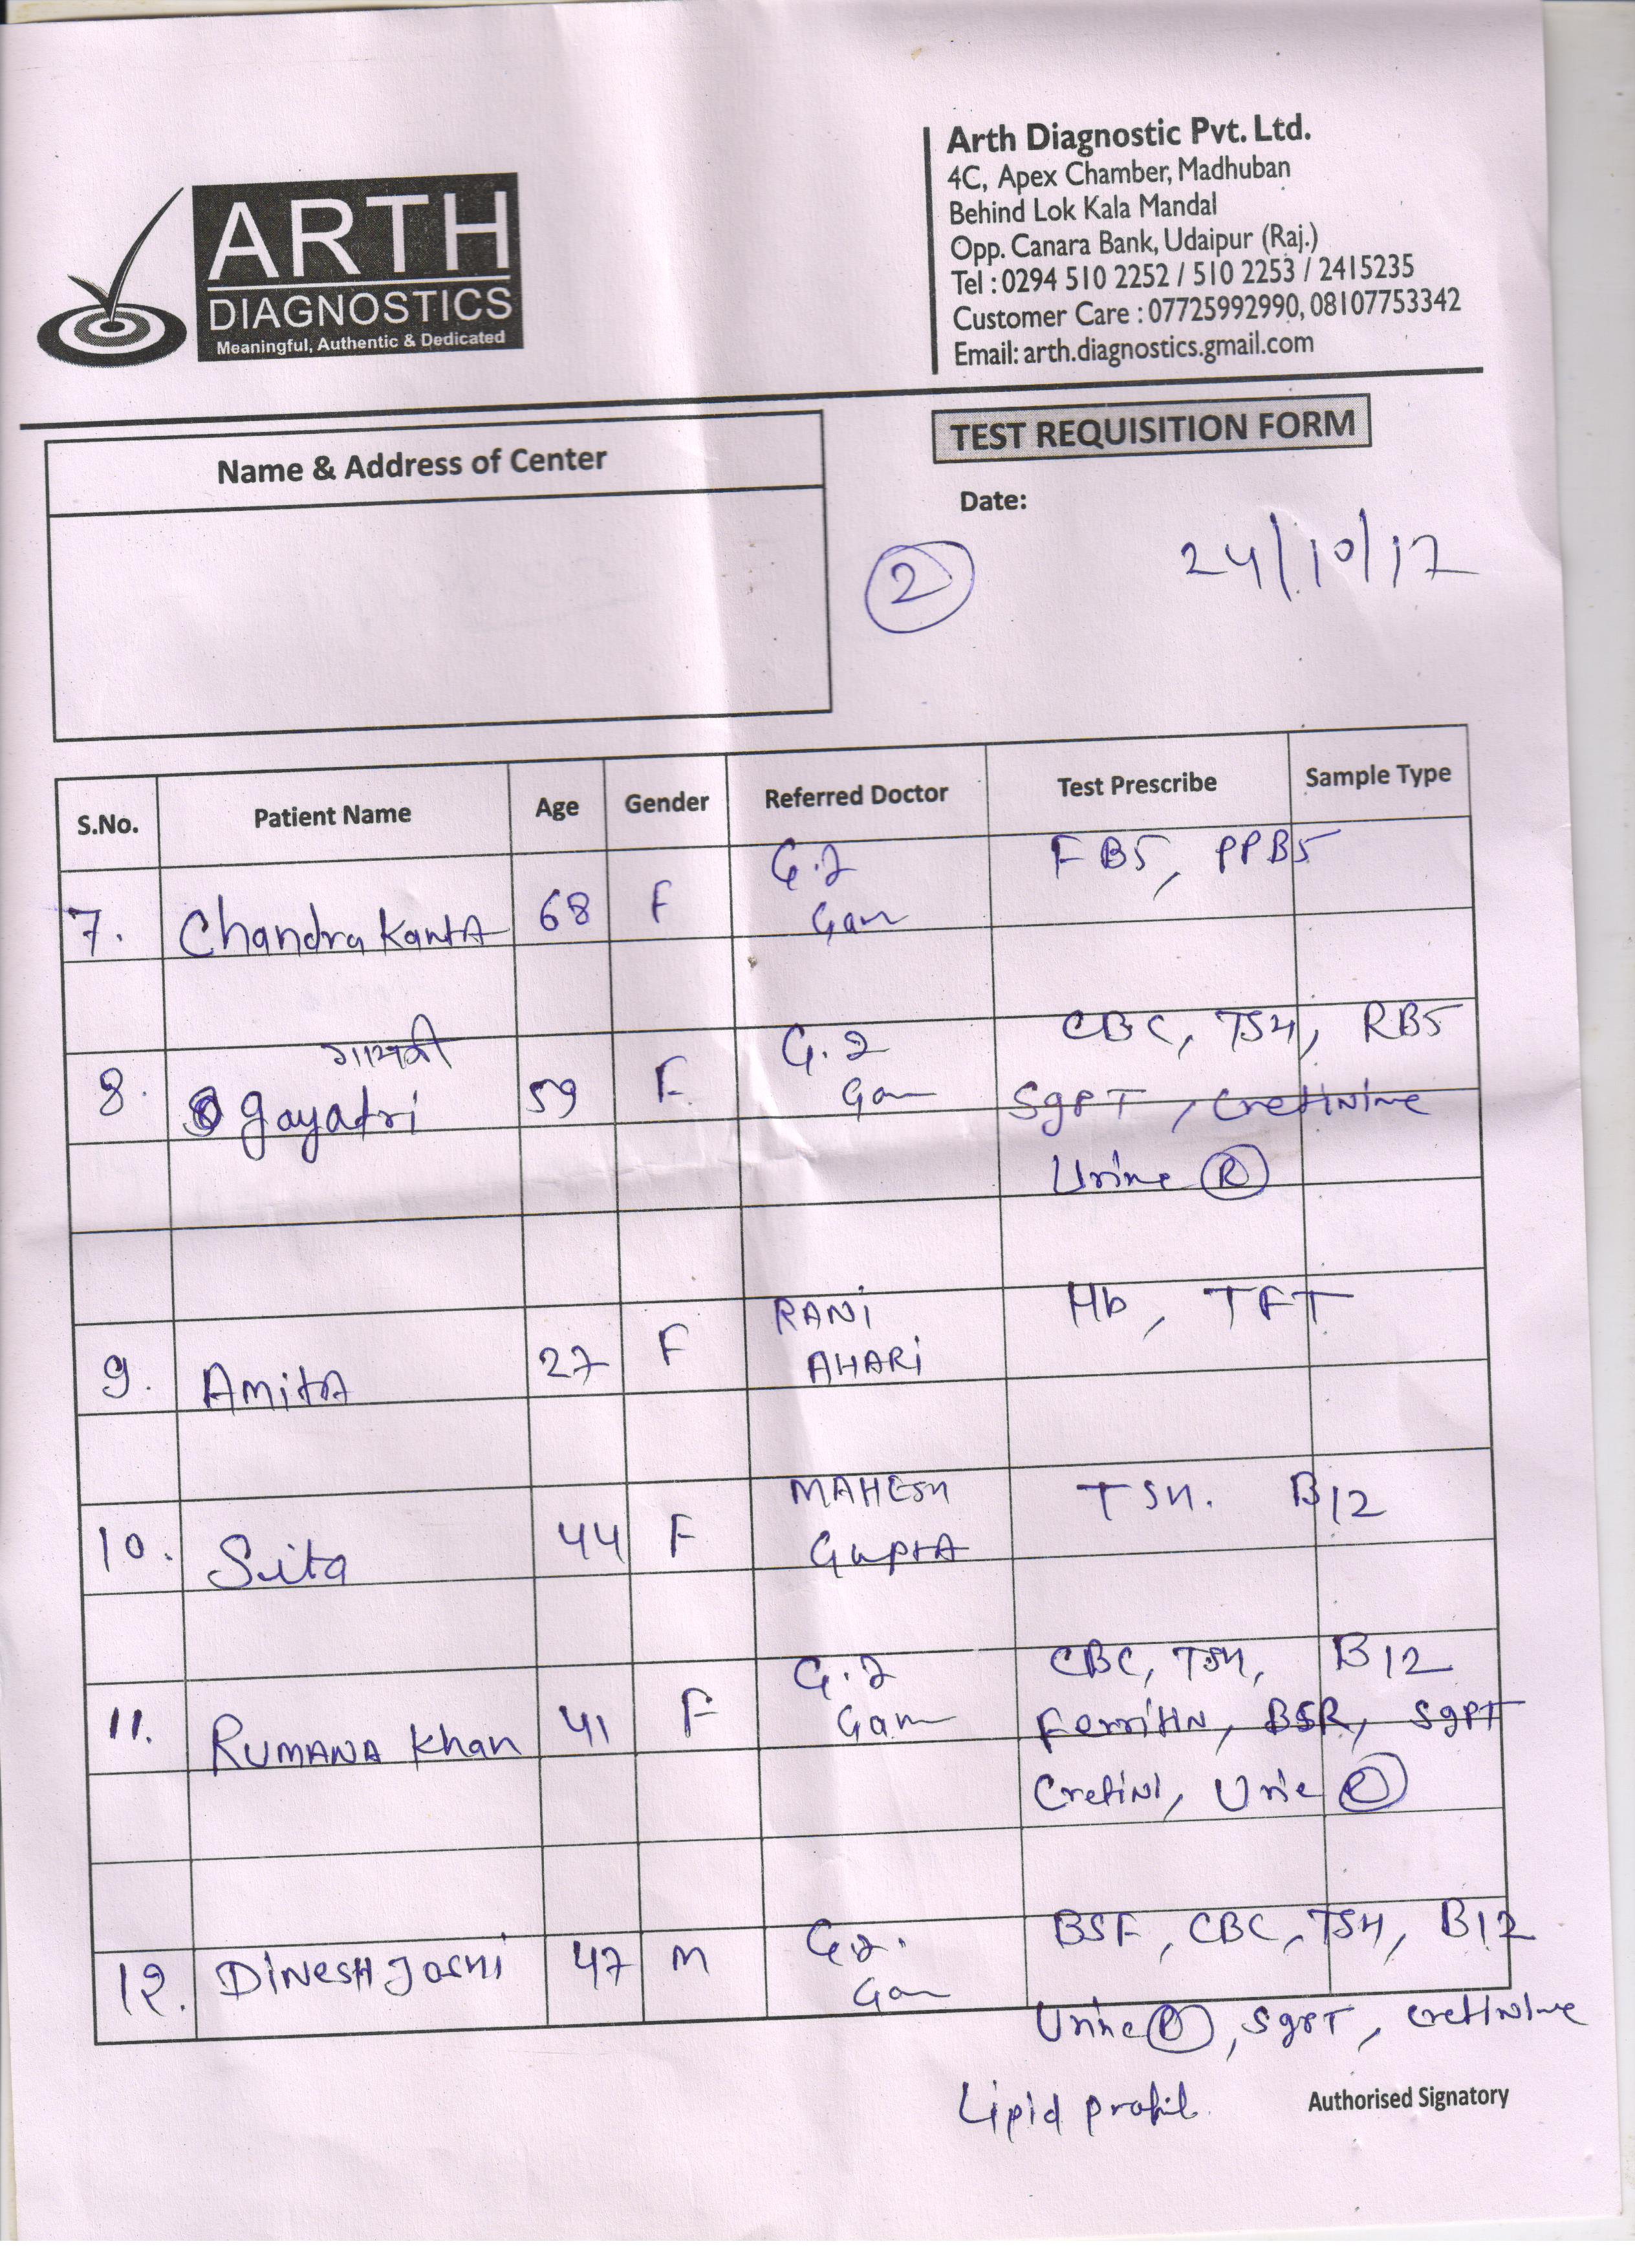 ARTH
DIAGNOSTICS
Meaningful, Authentic & Dedicated
Arth Diagnostic Pvt. Ltd.
4C, Apex Chamber, Madhuban
Behind Lok Kala Mandal
Opp. Canara Bank, Udaipur (Raj.)
Tel : 0294 510 2252 / 510 2253 / 2415235
Customer Care : 07725992990, 08107753342
Email: arth.diagnostics.gmail.com
Name & Address of Center
TEST REQUISITION FORM
Date:
2
24/10/17
S.No. Patient Name Age Gender Referred Doctor Test Prescribe Sample Type
G.2 FBS, PPBS
7. Chandra KantA 68 F Gan
गायत्री G.2 CBC, TSH, RBS
8. gayatri 59 F Gan SgPT, CretiNine
Urine R
RANi Hb, TFT
9. AmitA 27 F AHARi
MAHESH TSH. B12
10. Sita 44 F GuptA
G.2 CBC, TSH, B12
11. RUMANA Khan 41 F Gan FerritiN, BSR, SgPT
CretiNi, Urie R
G.2. BSF, CBC, TSH, B12
12. DiNESH JOSHi 47 M Gan
Urine R, SgPT, cretiNine
Lipid profil.
Authorised Signatory